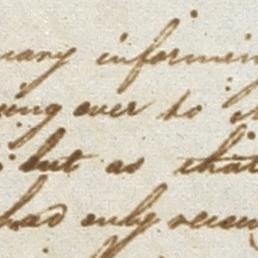 uary informin
ing over to
but as that
had only receiv